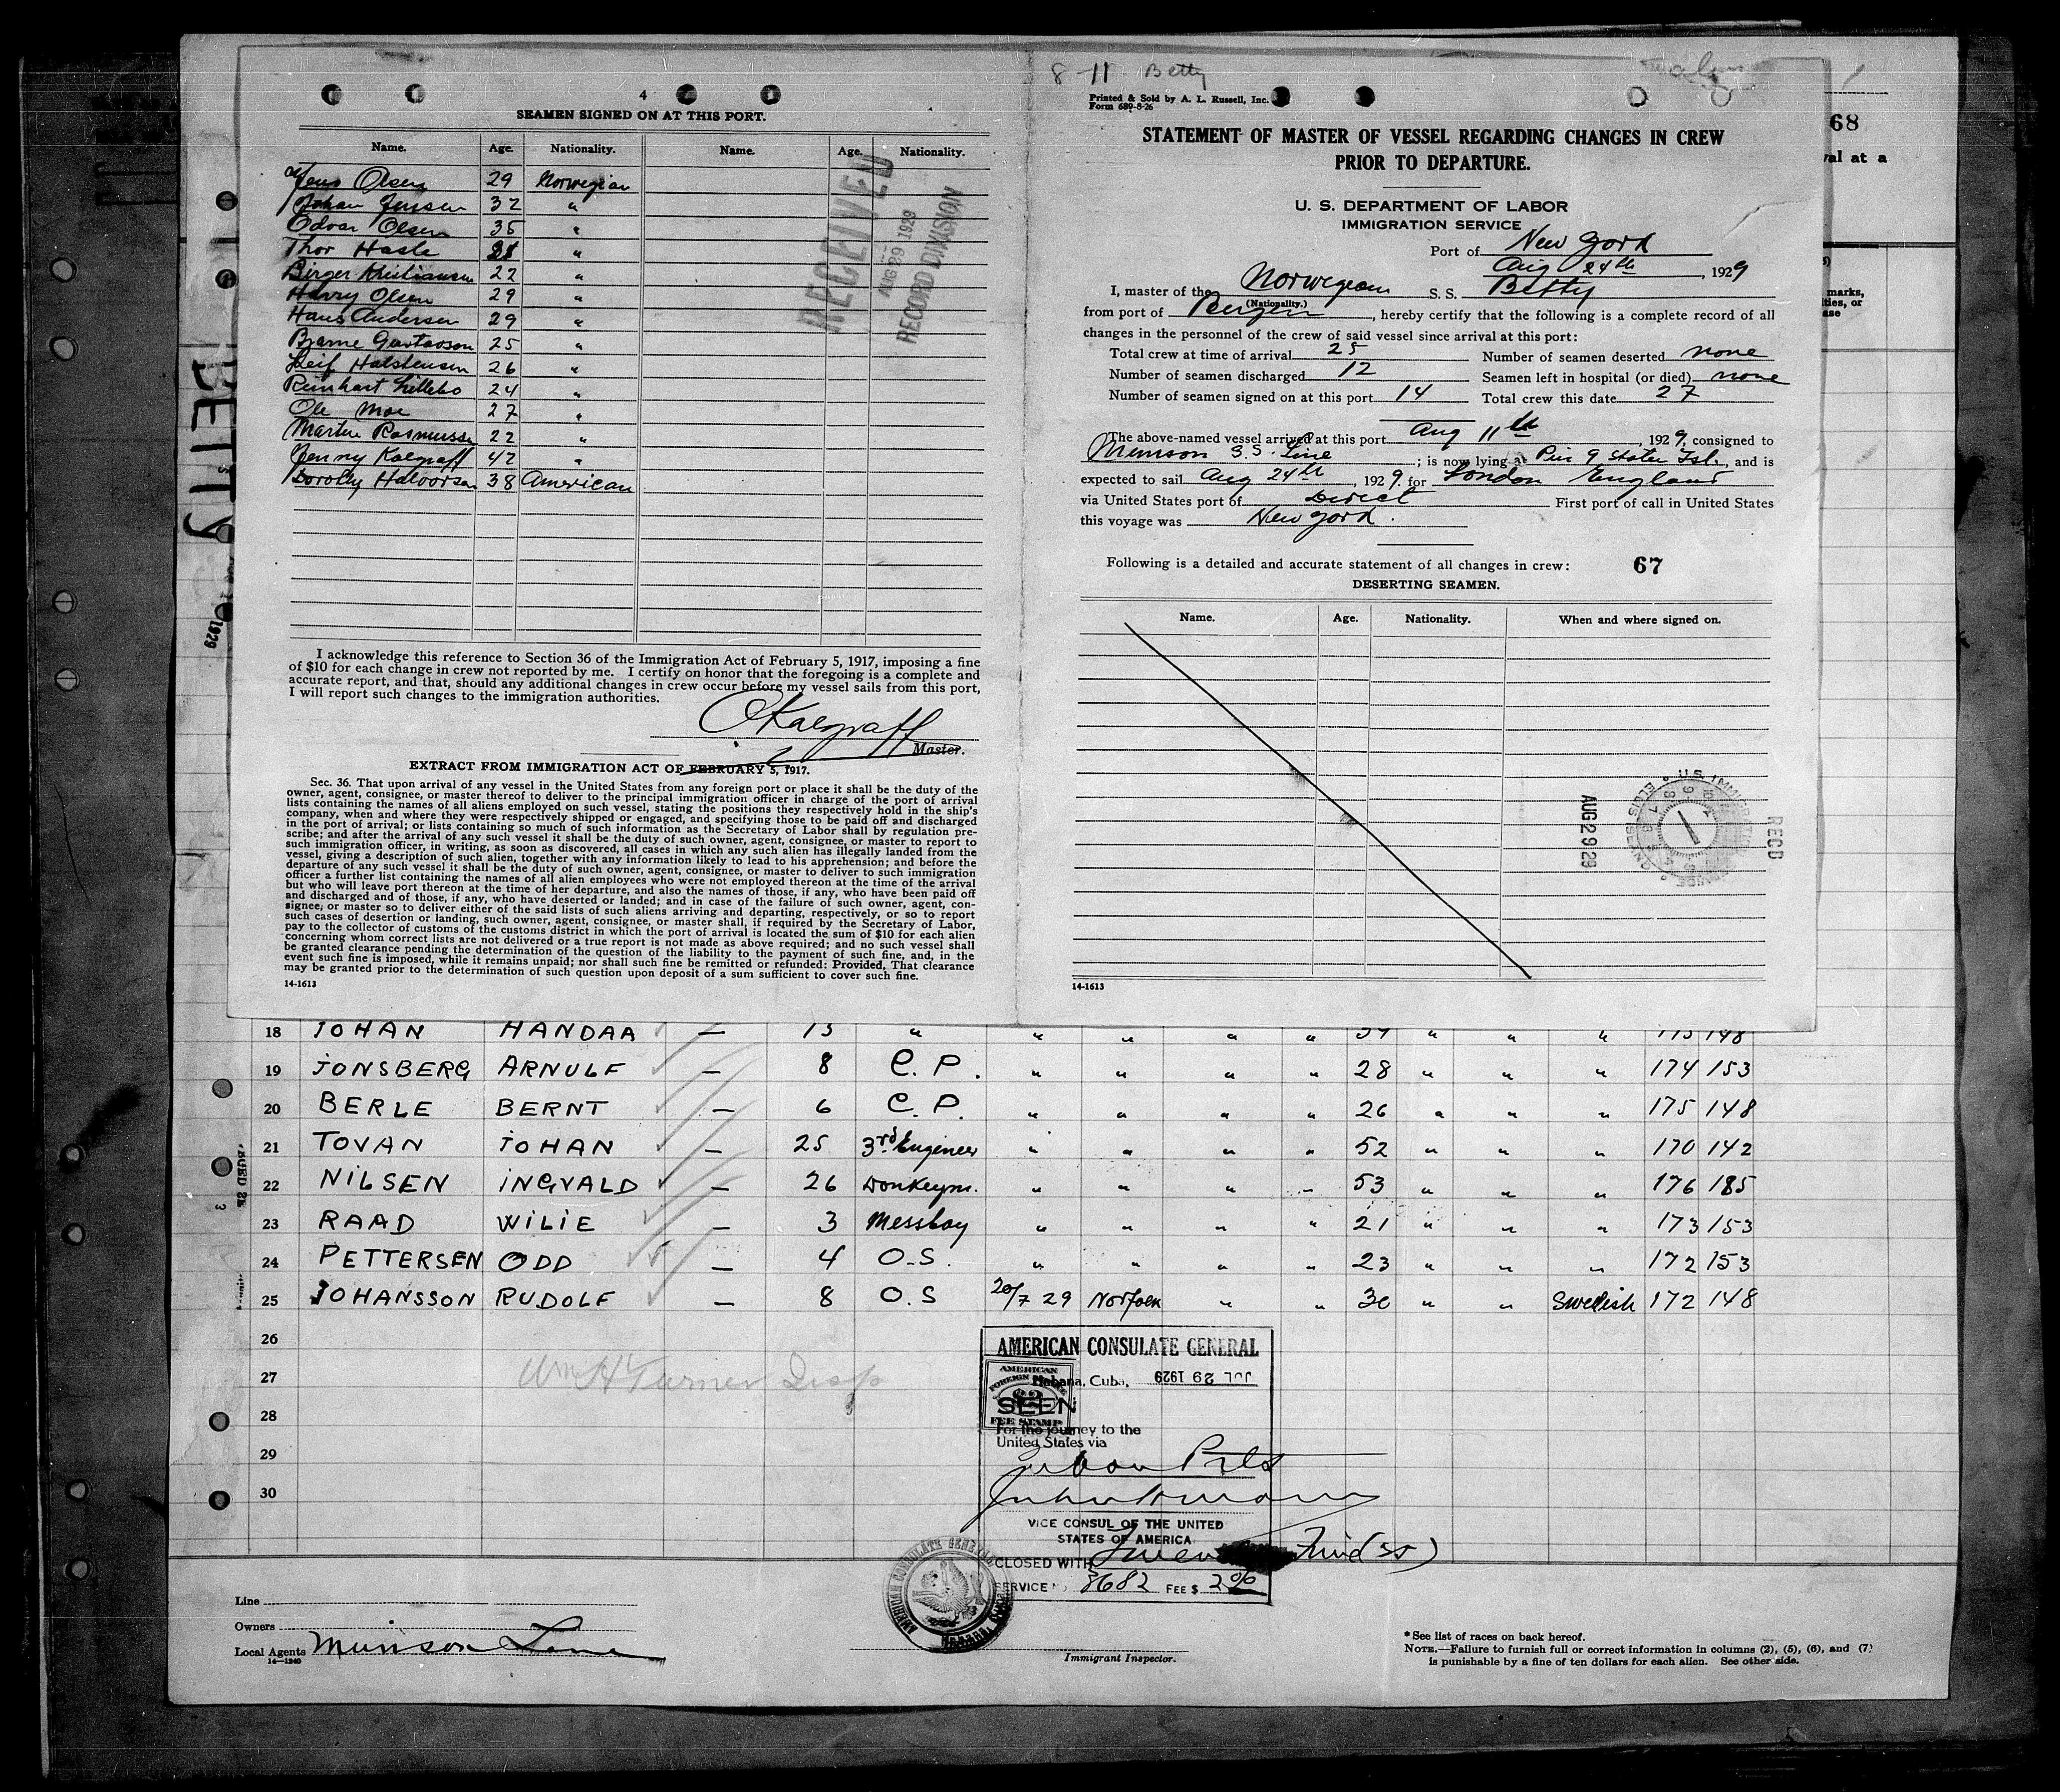 4
SEAMEN SIGNED ON AT THIS PORT.
Name. Age. Nationality. Name. Age. Nationality.
Jens Olsen 29 Norwegian
Johan Jensen 32 "
Odvar Olsen 35 "
Thor Hasle "
Birger Kristiansen 22 "
Harry Olsen 29 "
Hans Andersen 29 "
Bjarne Gustavson 25 "
Leif Halstensen 26 "
Reinhart Lillebo 24 "
Ole Moe 27 "
Martin Rasmusse 22 "
Jenny Kalgraff 42 "
Dorothy Halvorsen 38 American
RECEIVED
AUG 29 1929
RECORD DIVISION
I acknowledge this reference to Section 36 of the Immigration Act of February 5, 1917, imposing a fine
of $10 for each change in crew not reported by me. I certify on honor that the foregoing is a complete and
accurate report, and that, should any additional changes in crew occur before my vessel sails from this port,
I will report such changes to the immigration authorities.
OKalgraff
Master.
EXTRACT FROM IMMIGRATION ACT OF FEBRUARY 5, 1917.
Sec. 36. That upon arrival of any vessel in the United States from any foreign port or place it shall be the duty of the
owner, agent, consignee, or master thereof to deliver to the principal immigration officer in charge of the port of arrival
lists containing the names of all aliens employed on such vessel, stating the positions they respectively hold in the ship's
company, when and where they were respectively shipped or engaged, and specifying those to be paid off and discharged
in the port of arrival; or lists containing so much of such information as the Secretary of Labor shall by regulation pre-
scribe; and after the arrival of any such vessel it shall be the duty of such owner, agent, consignee, or master to report to
such immigration officer, in writing, as soon as discovered, all cases in which any such alien has illegally landed from the
vessel, giving a description of such alien, together with any information likely to lead to his apprehension; and before the
departure of any such vessel it shall be the duty of such owner, agent, consignee, or master to deliver to such immigration
officer a further list containing the names of all alien employees who were not employed thereon at the time of the arrival
but who will leave port thereon at the time of her departure, and also the names of those, if any, who have been paid off
and discharged and of those, if any, who have deserted or landed; and in case of the failure of such owner, agent, con-
signee, or master so to deliver either of the said lists of such aliens arriving and departing, respectively, or so to report
such cases of desertion or landing, such owner, agent, consignee, or master shall, if required by the Secretary of Labor,
pay to the collector of customs of the customs district in which the port of arrival is located the sum of $10 for each alien
concerning whom correct lists are not delivered or a true report is not made as above required; and no such vessel shall
be granted clearance pending the determination of the question of the liability to the payment of such fine, and, in the
event such fine is imposed, while it remains unpaid; nor shall such fine be remitted or refunded: Provided, That clearance
may be granted prior to the determination of such question upon deposit of a sum sufficient to cover such fine.
14-1613
8 - 11 Betty
Printed & Sold by A. L. Russell, Inc.
Form 689-8-26
STATEMENT OF MASTER OF VESSEL REGARDING CHANGES IN CREW
PRIOR TO DEPARTURE.
U. S. DEPARTMENT OF LABOR
IMMIGRATION SERVICE
Port of New York
Aug 24th, 1929
I, master of the Norwegian S. S. Betty
(Nationality.)
from port of Bergen, hereby certify that the following is a complete record of all
changes in the personnel of the crew of said vessel since arrival at this port:
Total crew at time of arrival 25 Number of seamen deserted none
Number of seamen discharged 12 Seamen left in hospital (or died) none
Number of seamen signed on at this port 14 Total crew this date 27
The above-named vessel arrived at this port Aug 11th, 1929, consigned to
Munson S.S. Line; is now lying at Pier 9 Staten Isl., and is
expected to sail Aug 24th, 1929 for London England
via United States port of Direct First port of call in United States
this voyage was New York.
Following is a detailed and accurate statement of all changes in crew: 67
DESERTING SEAMEN.
Name. Age. Nationality. When and where signed on.
AUG 29 29
RECD
14-1613
68
val at a
marks,
ties, or
ase
BETTY
1929
18 JOHAN HANDAA — 13 " " " " " 39 " " " 173 148
19 JONSBERG ARNULF — 8 C. P. " " " " 28 " " " 174 153
20 BERLE BERNT — 6 C. P. " " " " 26 " " " 175 148
21 TOVAN JOHAN — 25 3rd Engineer " " " " 52 " " " 170 142
22 NILSEN INGVALD — 26 Donkeym. " " " " 53 " " " 176 185
23 RAAD WILIE — 3 Messboy " " " " 21 " " " 173 153
24 PETTERSEN ODD — 4 O.S. " " " " 23 " " " 172 153
25 JOHANSSON RUDOLF — 8 O.S 20/7 29 Norfolk " " 30 " " Swedish 172 148
26
27 Wm H Turner Insp
28
29
30
AMERICAN CONSULATE GENERAL
Habana, Cuba, JUL 29 1929
AMERICAN
FOREIGN SERVICE
$2
FEE STAMP
SEEN
For the journey to the
United States via
VICE CONSUL OF THE UNITED
STATES OF AMERICA
CLOSED WITH
SERVICE No. 8682 FEE $ 2.00
AMERICAN CONSULATE GENERAL
HABANA, CUBA
Line
Owners
Local Agents Munson Line
14—1240
Immigrant Inspector.
*See list of races on back hereof.
NOTE.—Failure to furnish full or correct information in columns (2), (5), (6), and (7)
is punishable by a fine of ten dollars for each alien. See other side.